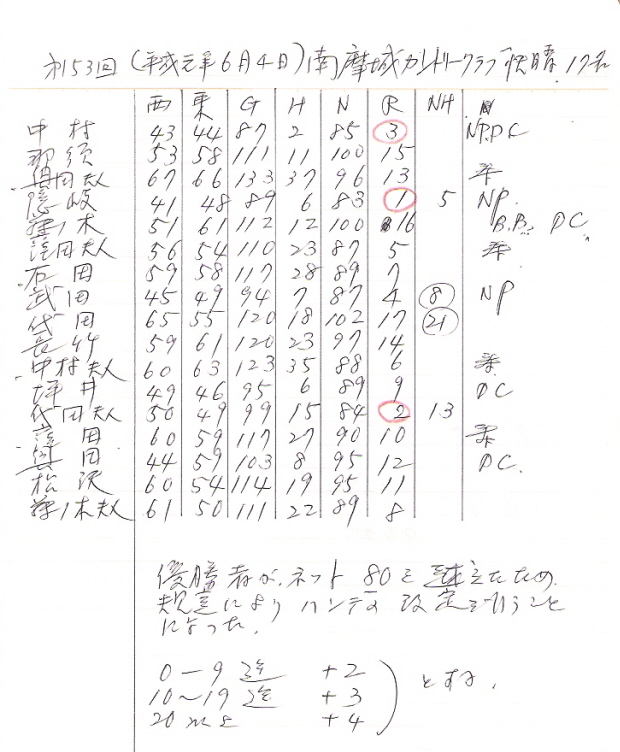 第153回 (平成元年6月4日) 南摩城カントリークラブ 快晴 17名
西 東 G H N R NH
中村 43 44 87 2 85 3 NP.DC
那須 53 58 111 11 100 15
奥田夫人 67 66 133 37 96 13
隠岐 41 48 89 6 83 1 5 NP.
舞ノ木 51 61 112 12 100 16 B.B. DC.
窪田夫人 56 54 110 23 87 5
石田 59 58 117 28 89 7
武田 45 49 94 7 87 4 8 NP
代田 65 55 120 18 102 17 21
長竹 59 61 120 23 97 14
中村夫人 60 63 123 35 88 6
坪井 49 46 95 6 89 9 DC
代田夫人 50 49 99 15 84 2 13
窪田 60 59 117 27 90 10
奥田 44 59 103 8 95 12 DC.
松沢 60 54 114 19 95 11
舞ノ木夫人 61 50 111 22 89 8
優勝者が、ネット 80を越えたため
規定により ハンデの 改定を行うこと
になった。
0－9迄 +2
10～19迄 +3
20以上 +4
とする.